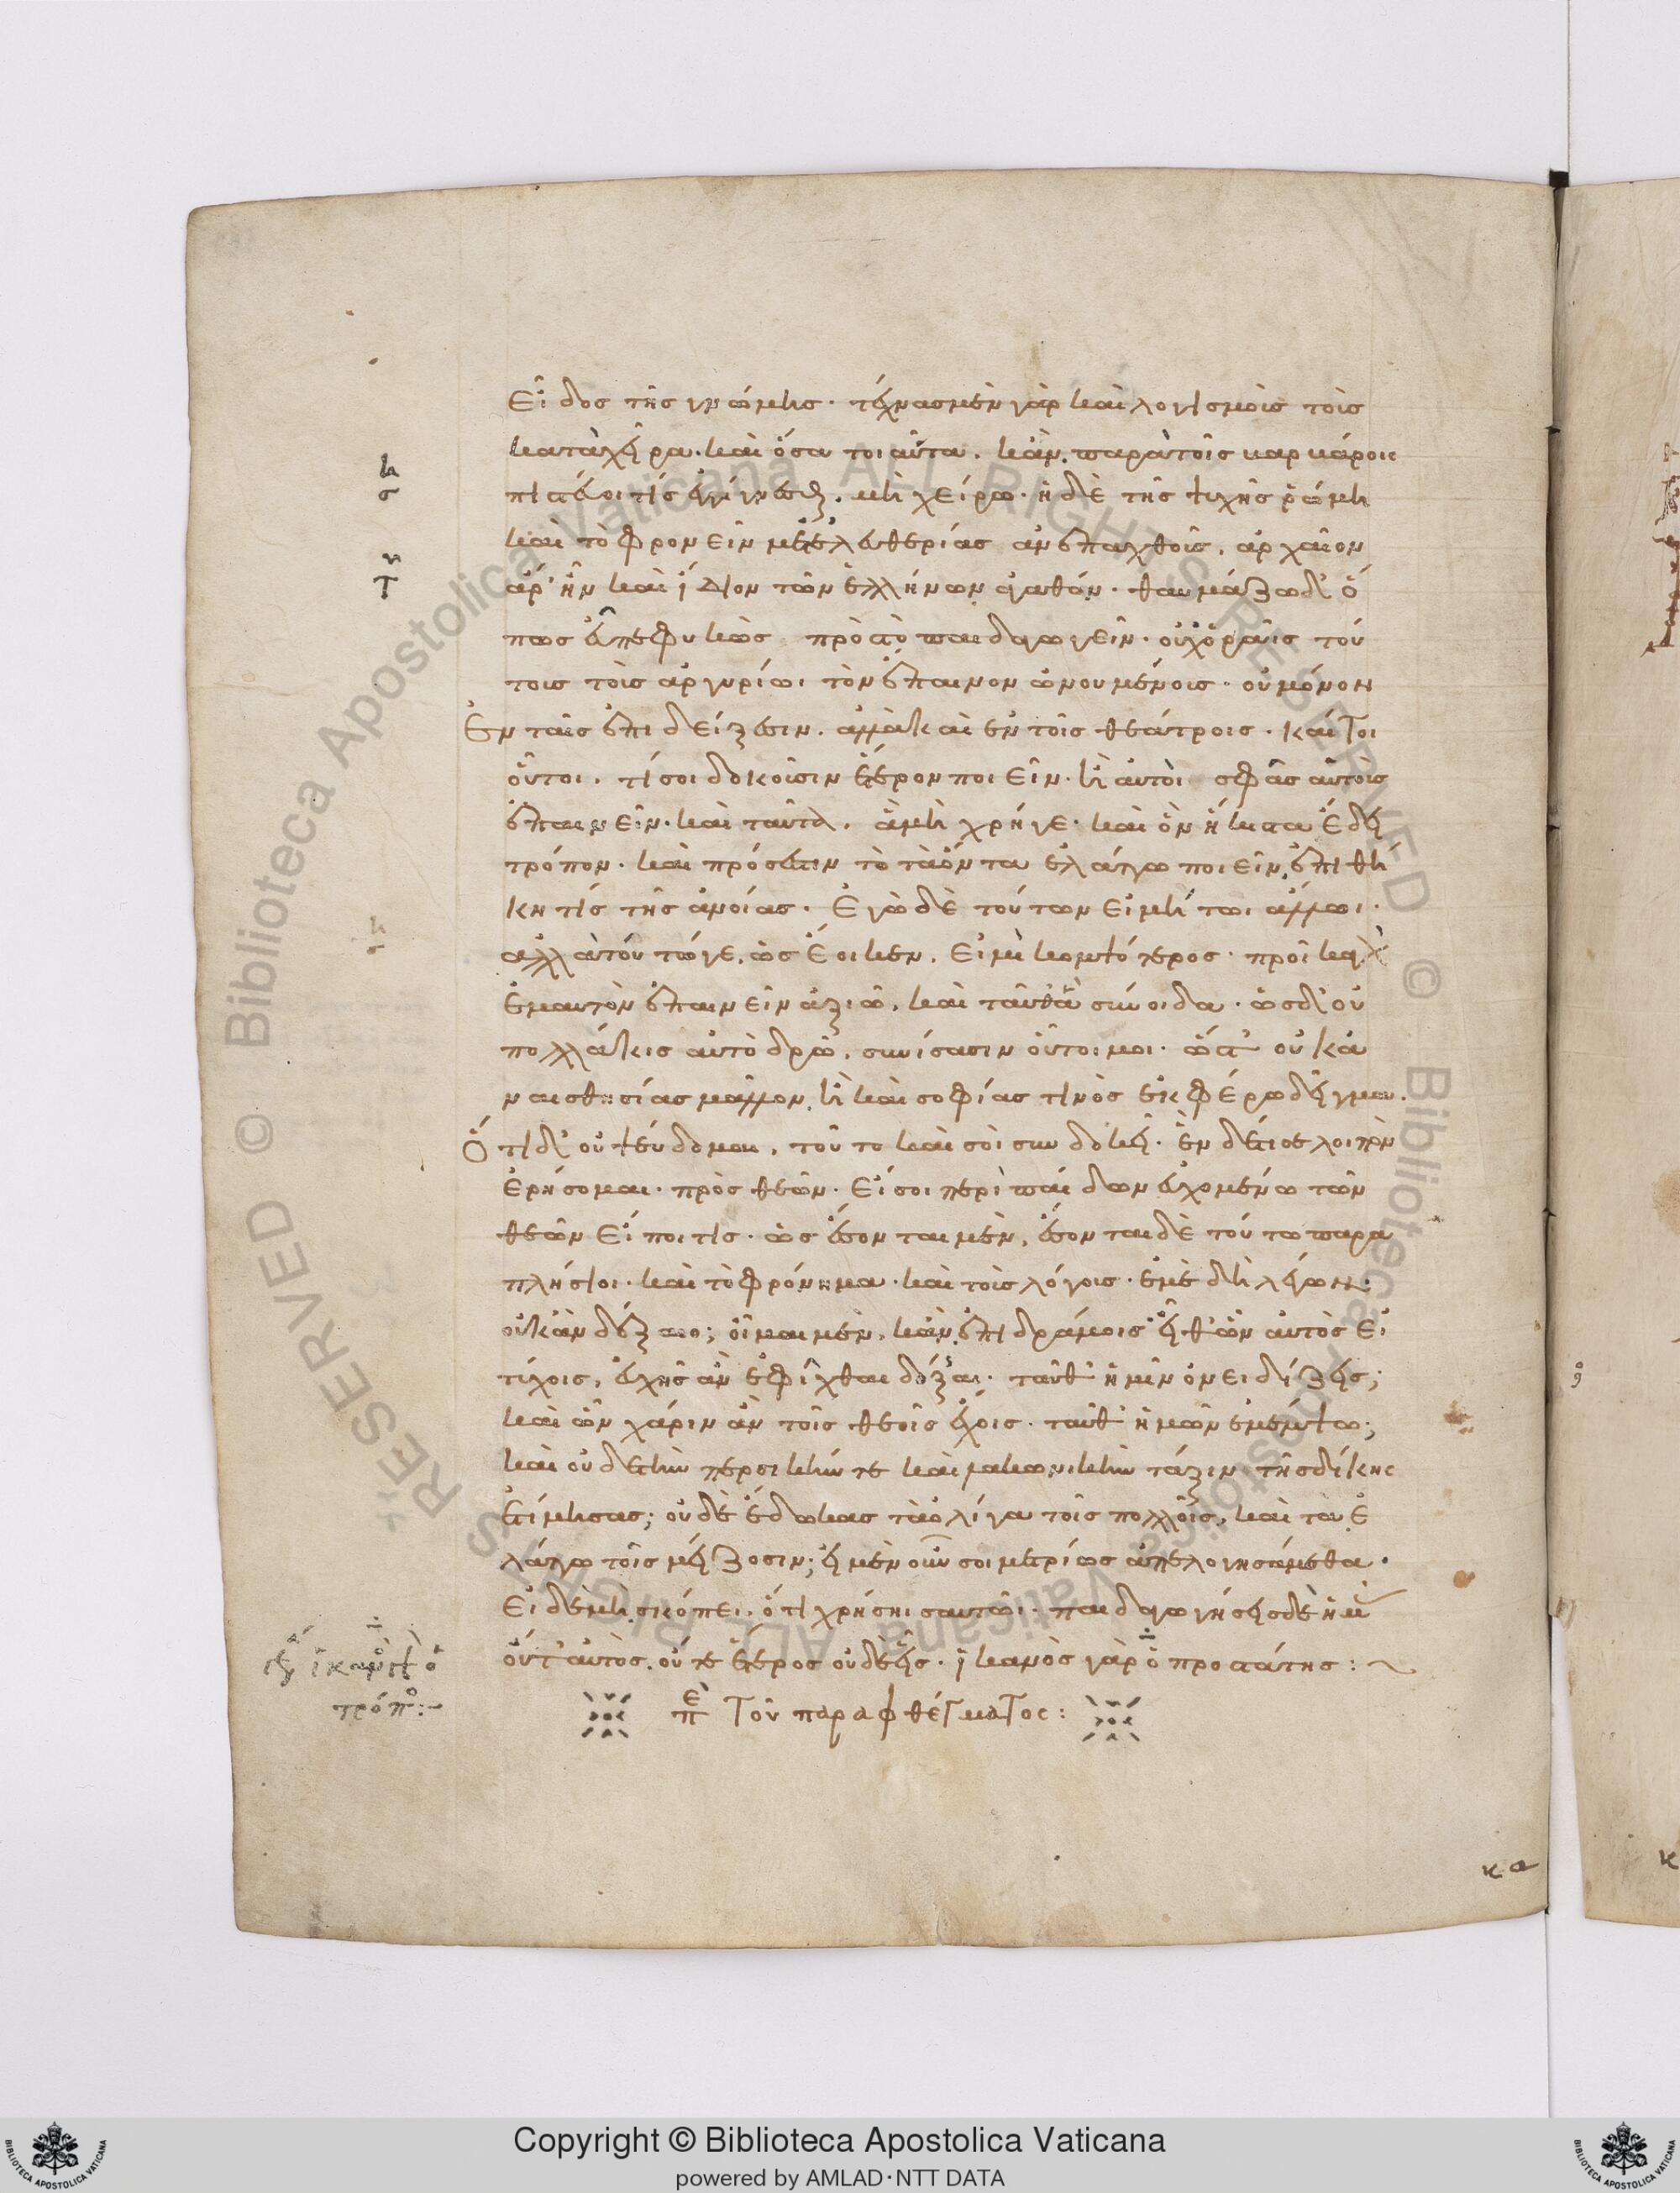 εἶδος τῆς γνώμης· τέχνας μὲν γὰρ καὶ λογισμοὺς τοὺς
κατὰ χεῖρα· καὶ ὅσα τοιαῦτα, κἂν παρὰ τοῖς καρκάροις
πιστεύοι τίς εἶναι γνώσει, μὴ χείρω· ἡ δὲ τῆς ψυχῆς ῥώμη
καὶ τὸ φρονεῖν μετ' ἐλευθερίας ἀνεπαχθοῦς, ἀρχαῖον
ἄρ' ἦν καὶ ἴδιον τῶν ἑλλήνων ἀγαθόν· θαυμάζω δ' ὅ
πως εὖ πεφυκὼς πρὸς τὸ παιδαγωγεῖν· οὐχ ὁρᾷς τού
τους τοὺς ἀργυρίωι τὸν ἔπαινον ὠνουμένους· οὐ μόνον
ἐν ταῖς ἐπιδείξεσιν, ἀλλὰ καὶ ἐν τοῖς θεάτροις· καίτοι
οὗτοι, τί σοι δοκοῦσιν ἕτερον ποιεῖν· ἢ αὐτοὶ σφᾶς αὐτοὺς
ἐπαινεῖν· καὶ ταῦτα, ἃ μὴ χρή γε· καὶ ὃν ἥκιστα ἔδει
τρόπον· καὶ πρόσεστιν τὸ τὰ ὄντα ἐλάττω ποιεῖν, ἐπιθή
κη τίς τῆς ἀνοίας· Ἐγὼ δὲ τούτων εἰ μή τωι ἄλλωι·
ἀλλὰ τούτω γε, ὡς ἔοικεν, εἰμὶ κομψότερος· προῖκα
ἐμαυτὸν ἐπαινεῖν ἀξιῶ, καὶ ταῦθ' ἃ σύνοιδα· ὡς δ' οὐ
πολλάκις αὐτὸ δρῶ, συνίσασιν οὗτοί μοι· ὥστ' οὐκ ἀ
ναισθησίας μᾶλλον, ἢ καὶ σοφίας τινὸς ἐκφέρω δεῖγμα.
Ὅτι δ' οὐ ψεύδομαι, τοῦτο καὶ σοὶ συνδοκεῖ· ἓν δέ τί σε λοιπὸν
ἐρήσομαι· πρὸς θεῶν· εἴ σοι περὶ παίδων εὐχομένω τῶν
θεῶν εἴποι τις· ὡς ἔσονται μὲν, ἔσονται δὲ τούτω παρα
πλήσιοι· καὶ τὸ φρόνημα· καὶ τοὺς λόγους· ἐμὲ δὴ λέγων·
οὐκ ἂν δέξαιο; οἶμαι μὲν, κἂν ἐπιδράμοις εἴθ' ὧν αὐτὸς εἰ
τύχοις, εὐχῆς ἂν ἐφῖχθαι δόξαι· ταῦθ' ἡμῖν ὀνειδίζεις;
καὶ ὧν χάριν ἂν τοῖς θεοῖς ἔχοις· ταῦθ' ἡμῶν ἐμέμψω;
καὶ οὐδὲ τὴν περσικήν τε καὶ λακωνικὴν τάξιν τῆς δίκης
ἐτίμησας; οὐδὲ ἔδωκας τὰ ὀλίγα τοῖς πολλοῖς, καὶ τὰ ἐ
λάττω τοῖς μείζοσιν; εἰ μὲν οὖν σοι μετρίως ἀπελογησάμεθα·
εἰ δὲ μὴ, σκόπει, ὅ τι χρήσηι σαυτῶι· παιδαγωγήσεις δὲ ἡμᾶς
οὔτ' αὐτὸς, οὔτε ἕτερος οὐδὲ εἷς· ἱκανὸς γὰρ ὁ προστάτης:
τρόπος:
περὶ τοῦ παραφθέγματος:
κα
Copyright © Biblioteca Apostolica Vaticana
powered by AMLAD·NTT DATA